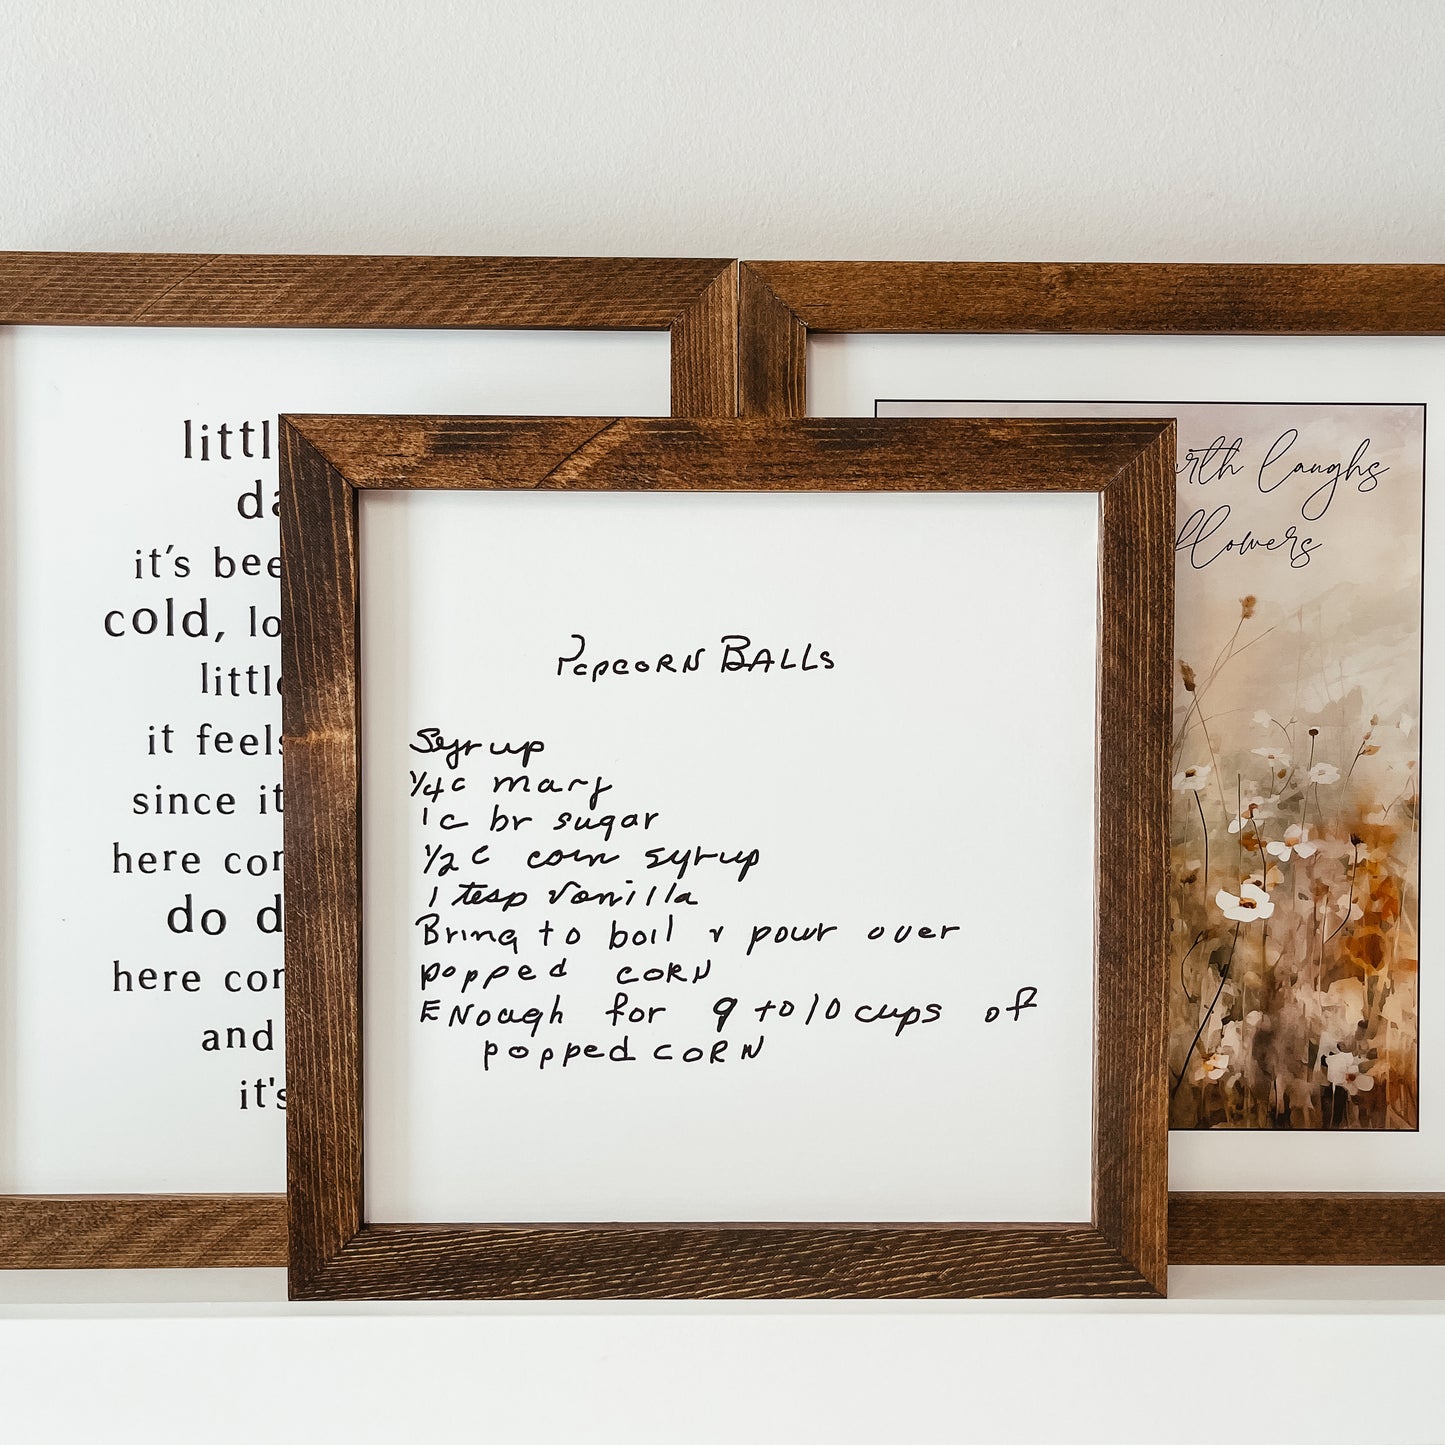 littl
da
it's bee
cold, lo
little
it feels
since it
here co
do d
here co
and
it's
Popcorn Balls
Syrup
1/4 c marg
1 c br sugar
1/2 c corn syrup
1 tesp vanilla
Bring to boil & pour over
popped corn
Enough for 9 to 10 cups of
popped corn
rth laughs
flowers